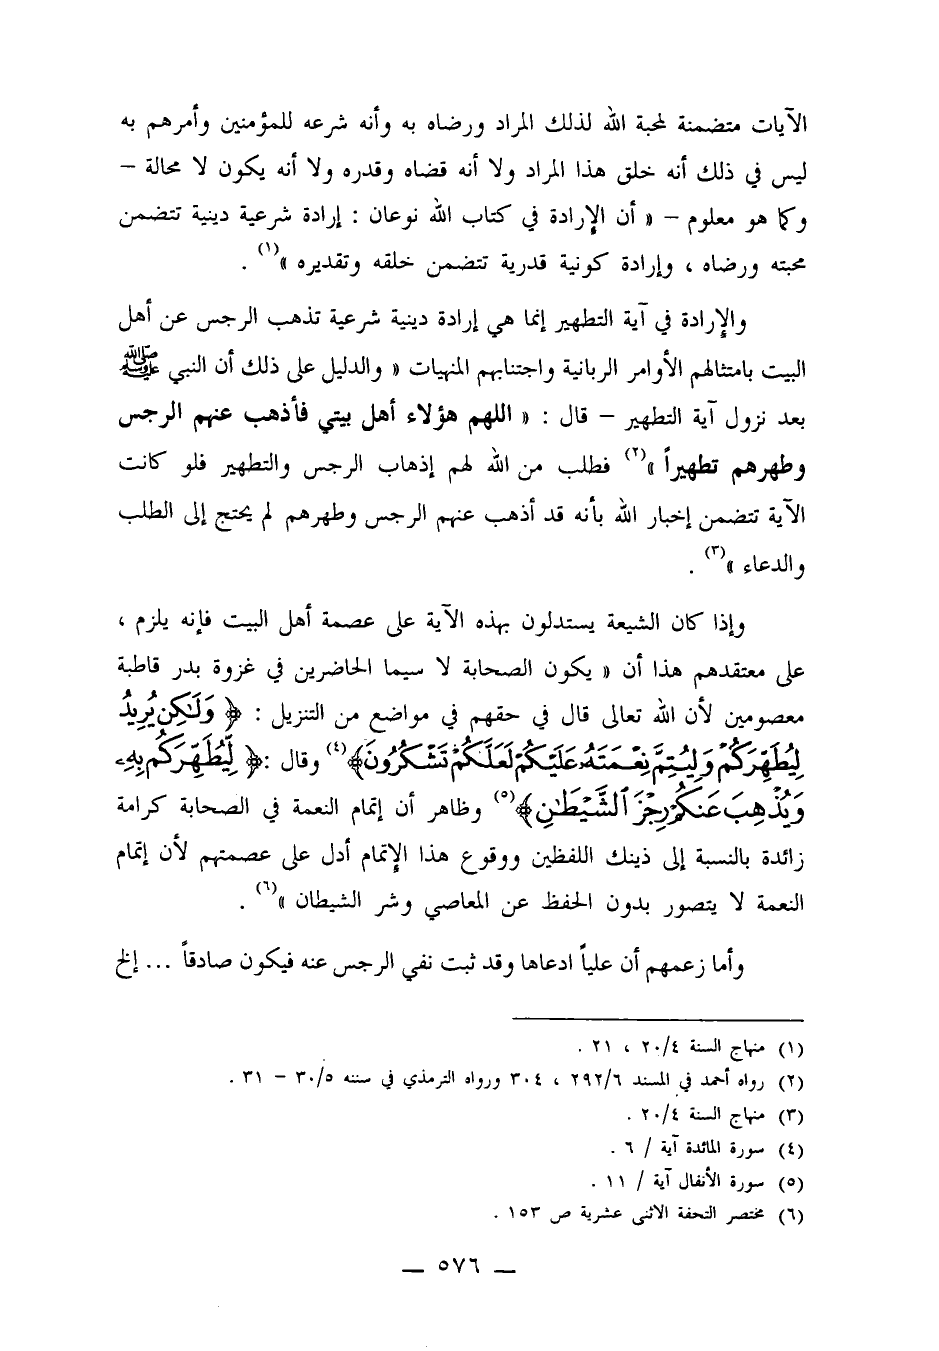 الآيات متضمنة لمحبة الله لذلك المراد ورضاه به وأنه شرعه للمؤمنين وأمرهم به
ليس في ذلك أنه خلق هذا المراد ولا أنه قضاه وقدره ولا أنه يكون لا محالة –
وكما هو معلوم – « أن الإرادة في كتاب الله نوعان : إرادة شرعية دينية تتضمن
محبته ورضاه ، وإرادة كونية قدرية تتضمن خلقه وتقديره »(١) .
والإرادة في آية التطهير إنما هي إرادة دينية شرعية تذهب الرجس عن أهل
البيت بامتثالهم الأوامر الربانية واجتنابهم المنهيات « والدليل على ذلك أن النبي ﷺ
بعد نزول آية التطهير – قال : « اللهم هؤلاء أهل بيتي فأذهب عنهم الرجس
وطهرهم تطهيراً »(٢) فطلب من الله لهم إذهاب الرجس والتطهير فلو كانت
الآية تتضمن إخبار الله بأنه قد أذهب عنهم الرجس وطهرهم لم يحتج إلى الطلب
والدعاء »(٣) .
وإذا كان الشيعة يستدلون بهذه الآية على عصمة أهل البيت فإنه يلزم ،
على معتقدهم هذا أن « يكون الصحابة لا سيما الحاضرين في غزوة بدر قاطبة
معصومين لأن الله تعالى قال في حقهم في مواضع من التنزيل : ﴿ وَلَٰكِن يُرِيدُ
لِيُطَهِّرَكُمْ وَلِيُتِمَّ نِعْمَتَهُۥ عَلَيْكُمْ لَعَلَّكُمْ تَشْكُرُونَ﴾(٤) وقال :﴿ لِّيُطَهِّرَكُم بِهِۦ
وَيُذْهِبَ عَنكُمْ رِجْزَ ٱلشَّيْطَٰنِ﴾(٥) وظاهر أن إتمام النعمة في الصحابة كرامة
زائدة بالنسبة إلى ذينك اللفظين ووقوع هذا الإتمام أدل على عصمتهم لأن إتمام
النعمة لا يتصور بدون الحفظ عن المعاصي وشر الشيطان »(٦) .
وأما زعمهم أن علياً ادعاها وقد ثبت نفي الرجس عنه فيكون صادقاً ... إلخ
(١) منهاج السنة ٢٠/٤ ، ٢١ .
(٢) رواه أحمد في المسند ٢٩٢/٦ ، ٣٠٤ ورواه الترمذي في سننه ٣٠/٥ – ٣١ .
(٣) منهاج السنة ٢٠/٤ .
(٤) سورة المائدة آية / ٦ .
(٥) سورة الأنفال آية / ١١ .
(٦) مختصر التحفة الاثنى عشرية ص ١٥٣ .
— ٥٧٦ —